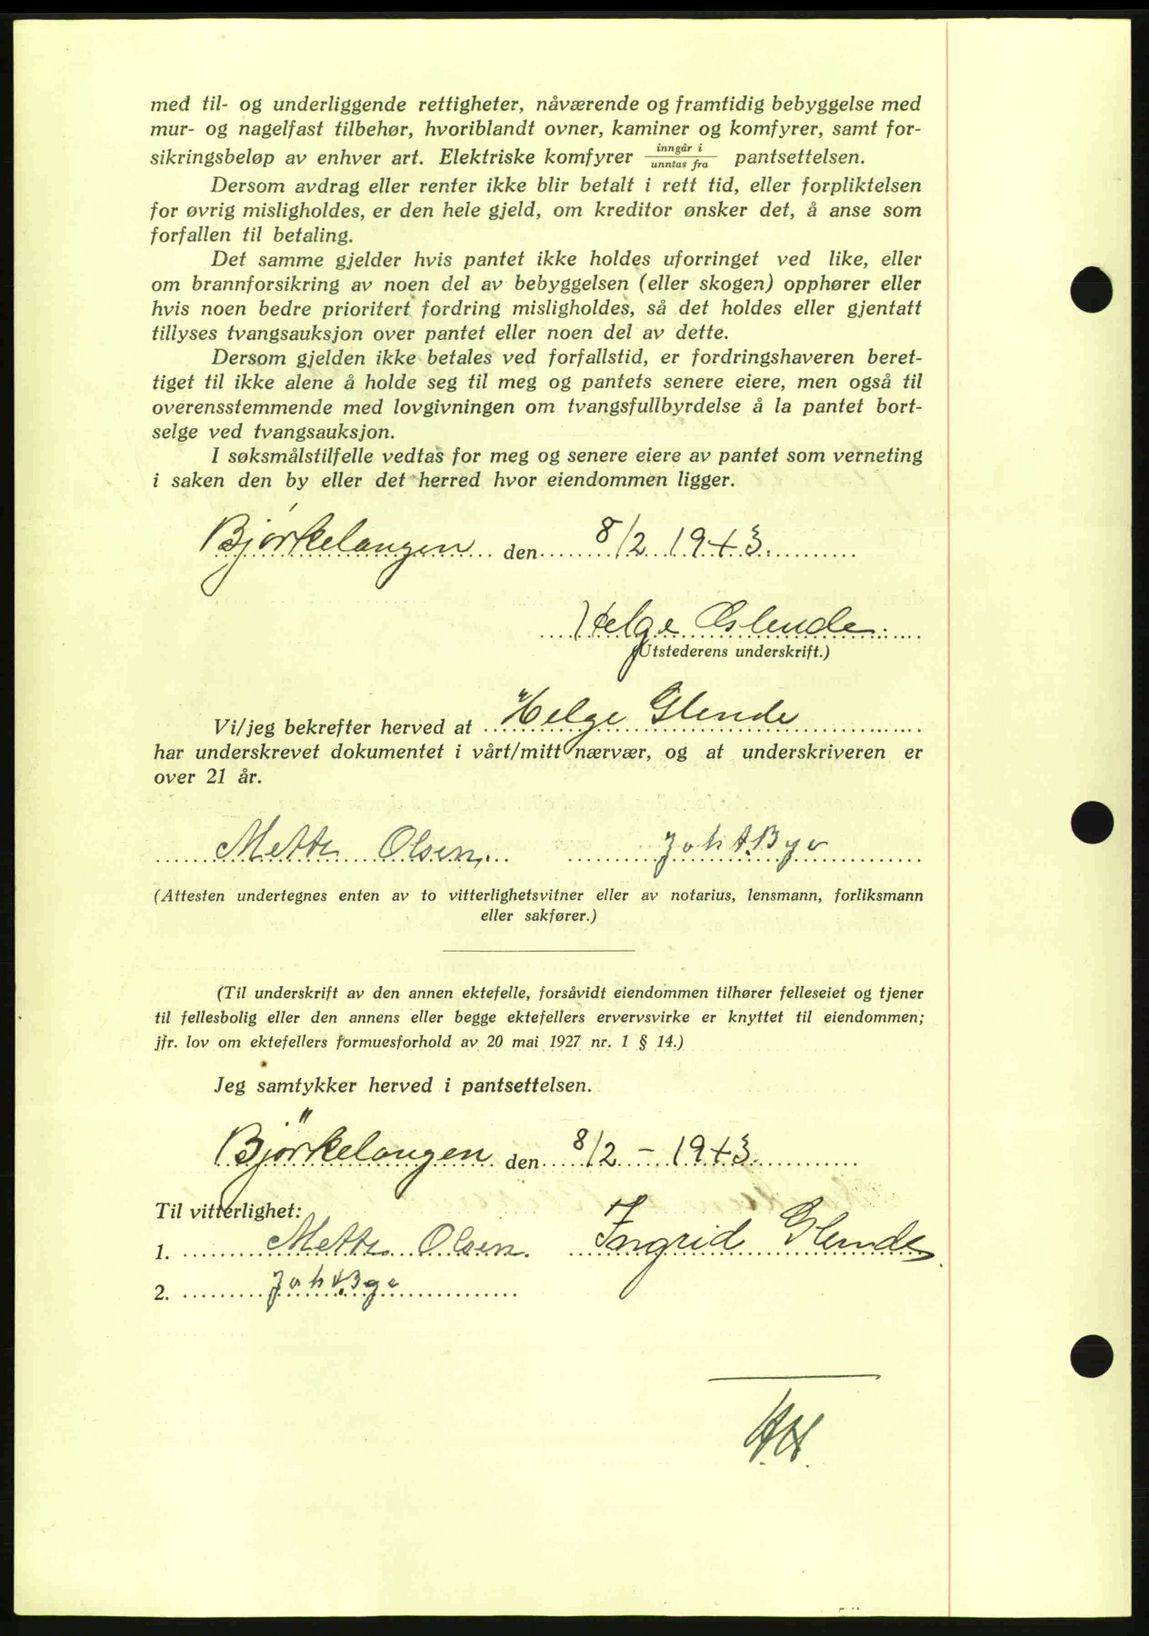 med til- og underliggende rettigheter, nåværende og framtidig bebyggelse med
mur- og nagelfast tilbehør, hvoriblandt ovner, kaminer og komfyrer, samt for-
sikringsbeløp av enhver art. Elektriske komfyrer inngår i / unntas fra pantsettelsen.
Dersom avdrag eller renter ikke blir betalt i rett tid, eller forpliktelsen
for øvrig misligholdes, er den hele gjeld, om kreditor ønsker det, å anse som
forfallen til betaling.
Det samme gjelder hvis pantet ikke holdes uforringet ved like, eller
om brannforsikring av noen del av bebyggelsen (eller skogen) opphører eller
hvis noen bedre prioritert fordring misligholdes, så det holdes eller gjentatt
tillyses tvangsauksjon over pantet eller noen del av dette.
Dersom gjelden ikke betales ved forfallstid, er fordringshaveren beret-
tiget til ikke alene å holde seg til meg og pantets senere eiere, men også til
overensstemmende med lovgivningen om tvangsfullbyrdelse å la pantet bort-
selge ved tvangsauksjon.
I søksmålstilfelle vedtas for meg og senere eiere av pantet som verneting
i saken den by eller det herred hvor eiendommen ligger.
Bjørkelangen den 8/2 1943.
Helge Glende
(Utstederens underskrift.)
Vi/jeg bekrefter herved at Helge Glende
har underskrevet dokumentet i vårt/mitt nærvær, og at underskriveren er
over 21 år.
Mette Olsen.
(Attesten undertegnes enten av to vitterlighetsvitner eller av notarius, lensmann, forliksmann
eller sakfører.)
(Til underskrift av den annen ektefelle, forsåvidt eiendommen tilhører felleseiet og tjener
til fellesbolig eller den annens eller begge ektefellers ervervsvirke er knyttet til eiendommen;
jfr. lov om ektefellers formuesforhold av 20 mai 1927 nr. 1 § 14.)
Jeg samtykker herved i pantsettelsen.
Björkelangen den 8/2 - 1943.
Til vitterlighet:
1. Mette Olsen. Ingrid Glende.
2.